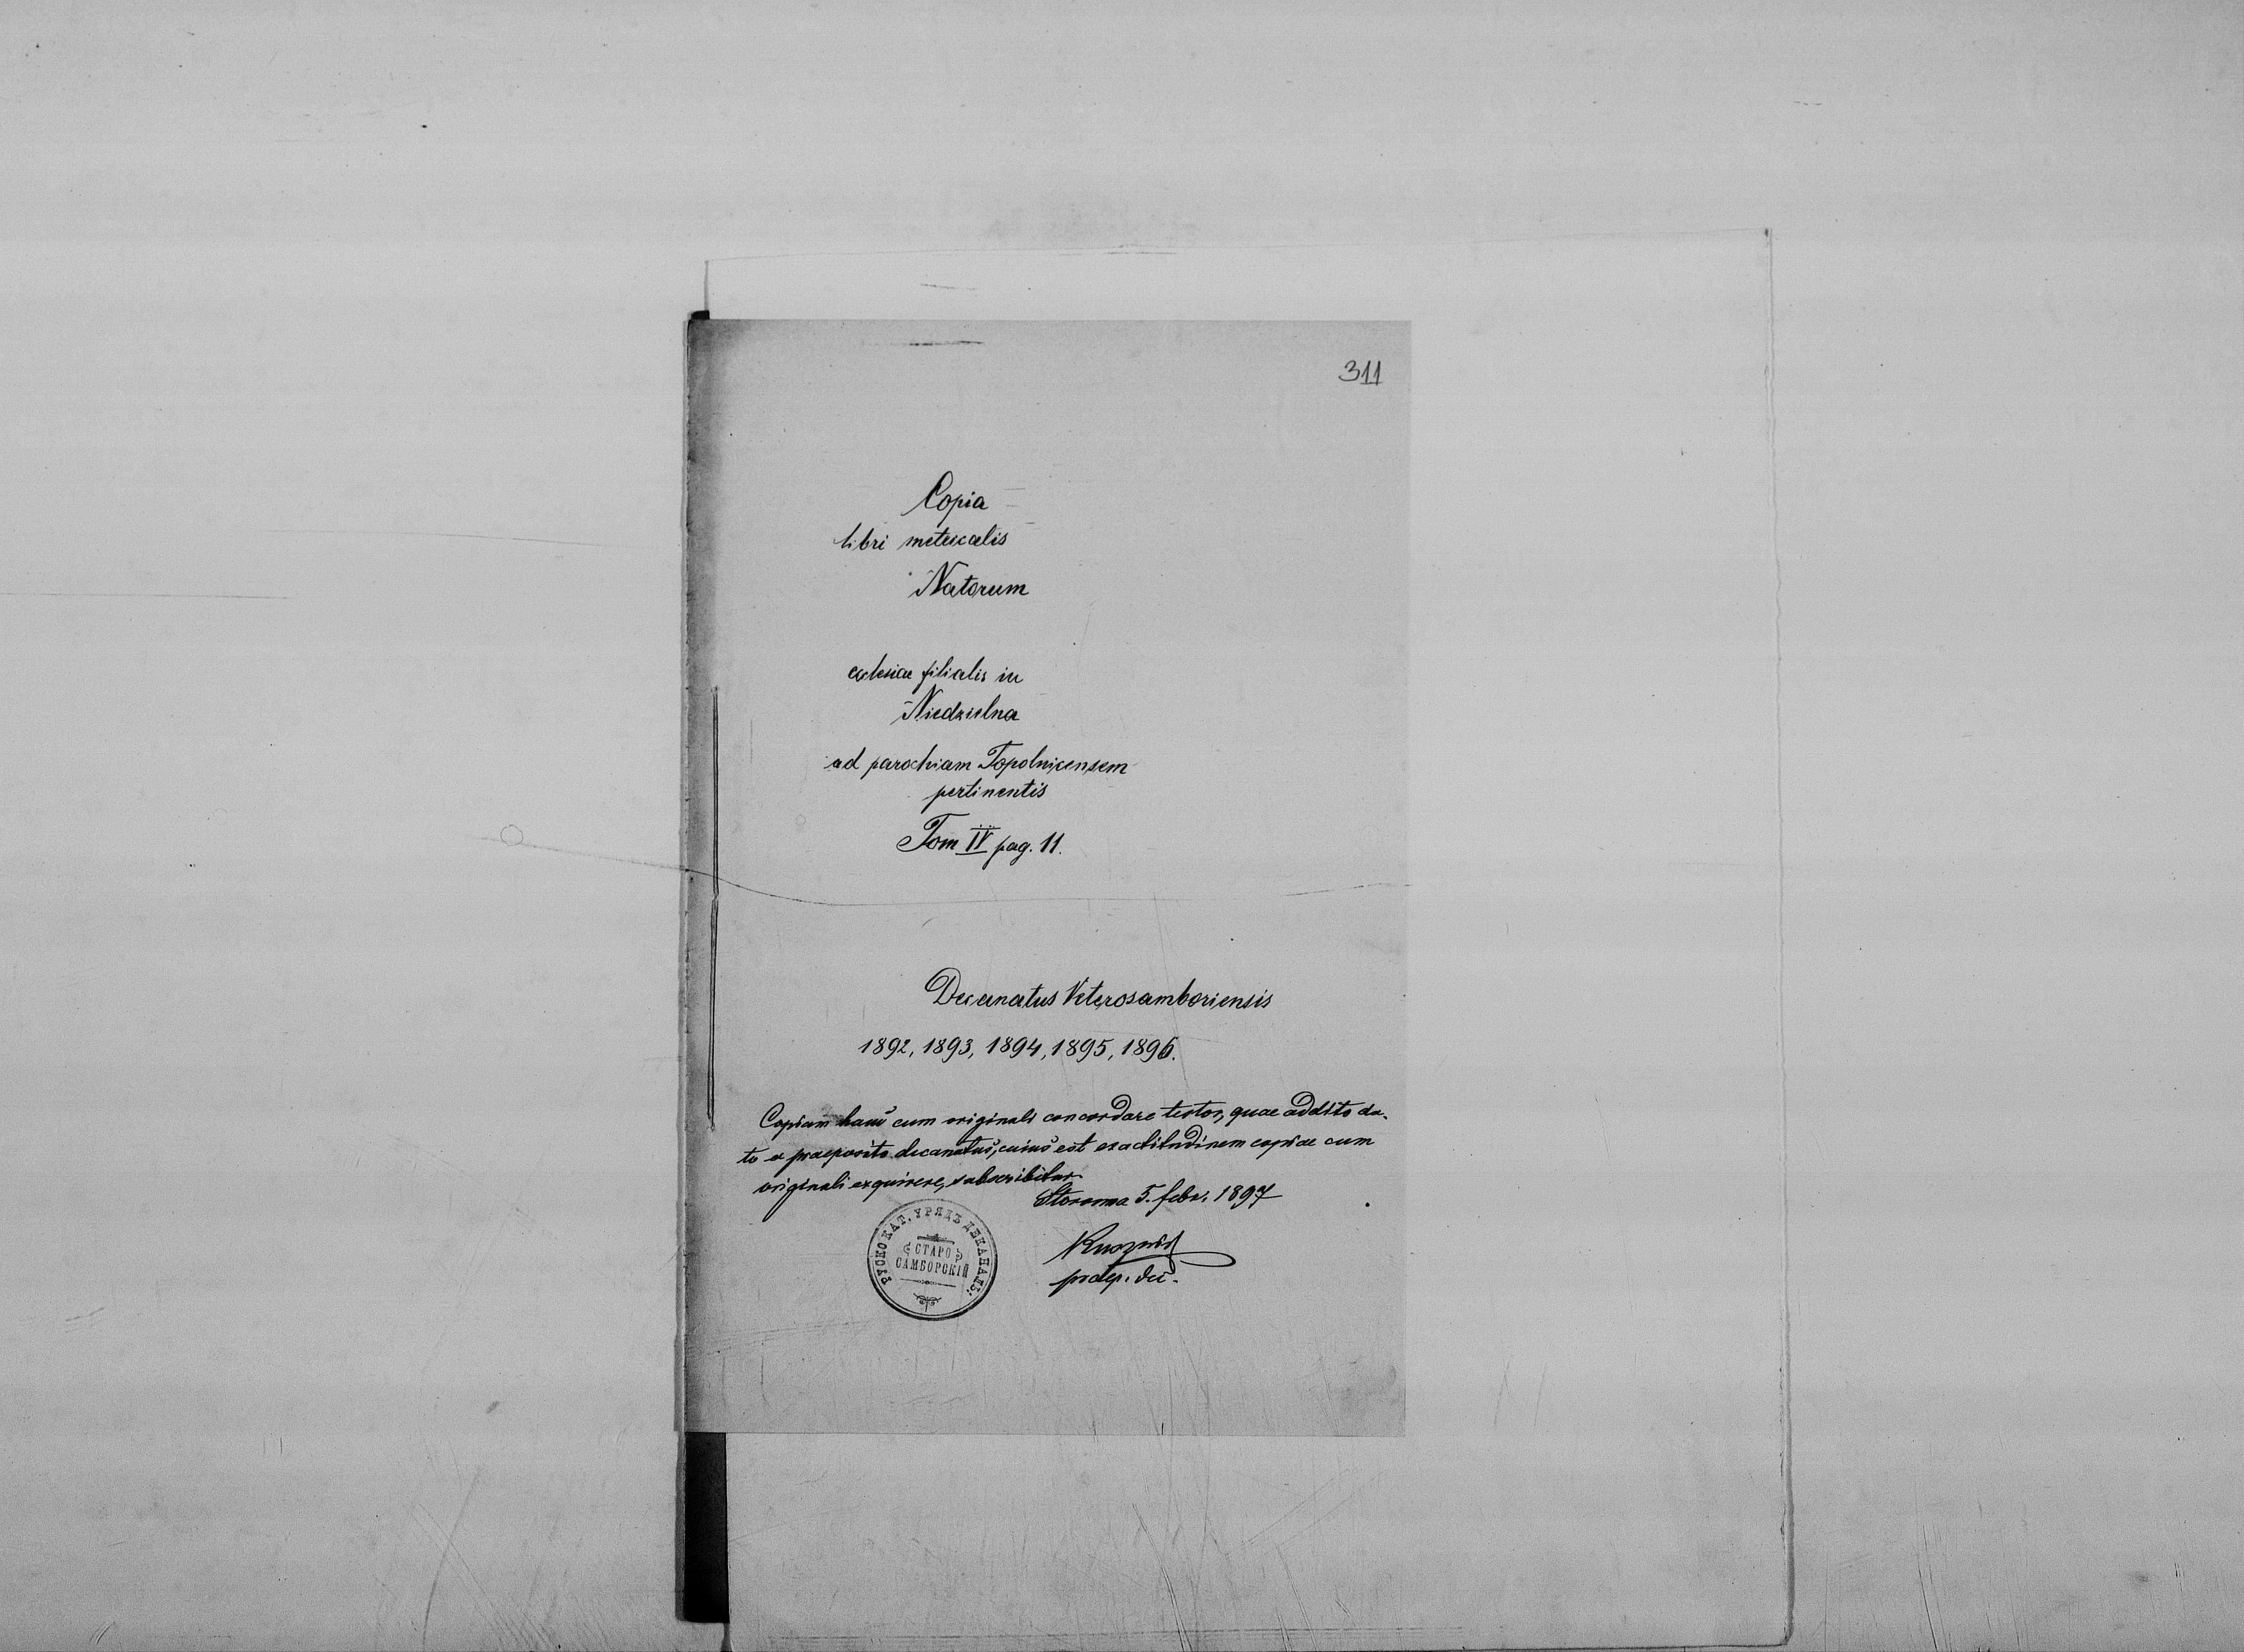 311
Copia
libri metricalis
Natorum
eclesiae filialis in
Niedzielna
ad parochiam Topolnicensem
pertinentis
Tom IV pag. 11.
Decanatus Veterosamboriensis
1892, 1893, 1894, 1895, 1896.
Copiam hanc cum originali concordare testor, quae addito da-
to a praeposito decanatus, cuius est exactitudinem copiae cum
originali exquirere, subscribitur
5. febr. 1897
praep. dec.
РУСКО КАТ. УРЯДЪ ДЕКАНАЛЬ.
СТАРО
САМБОРСКІЙ